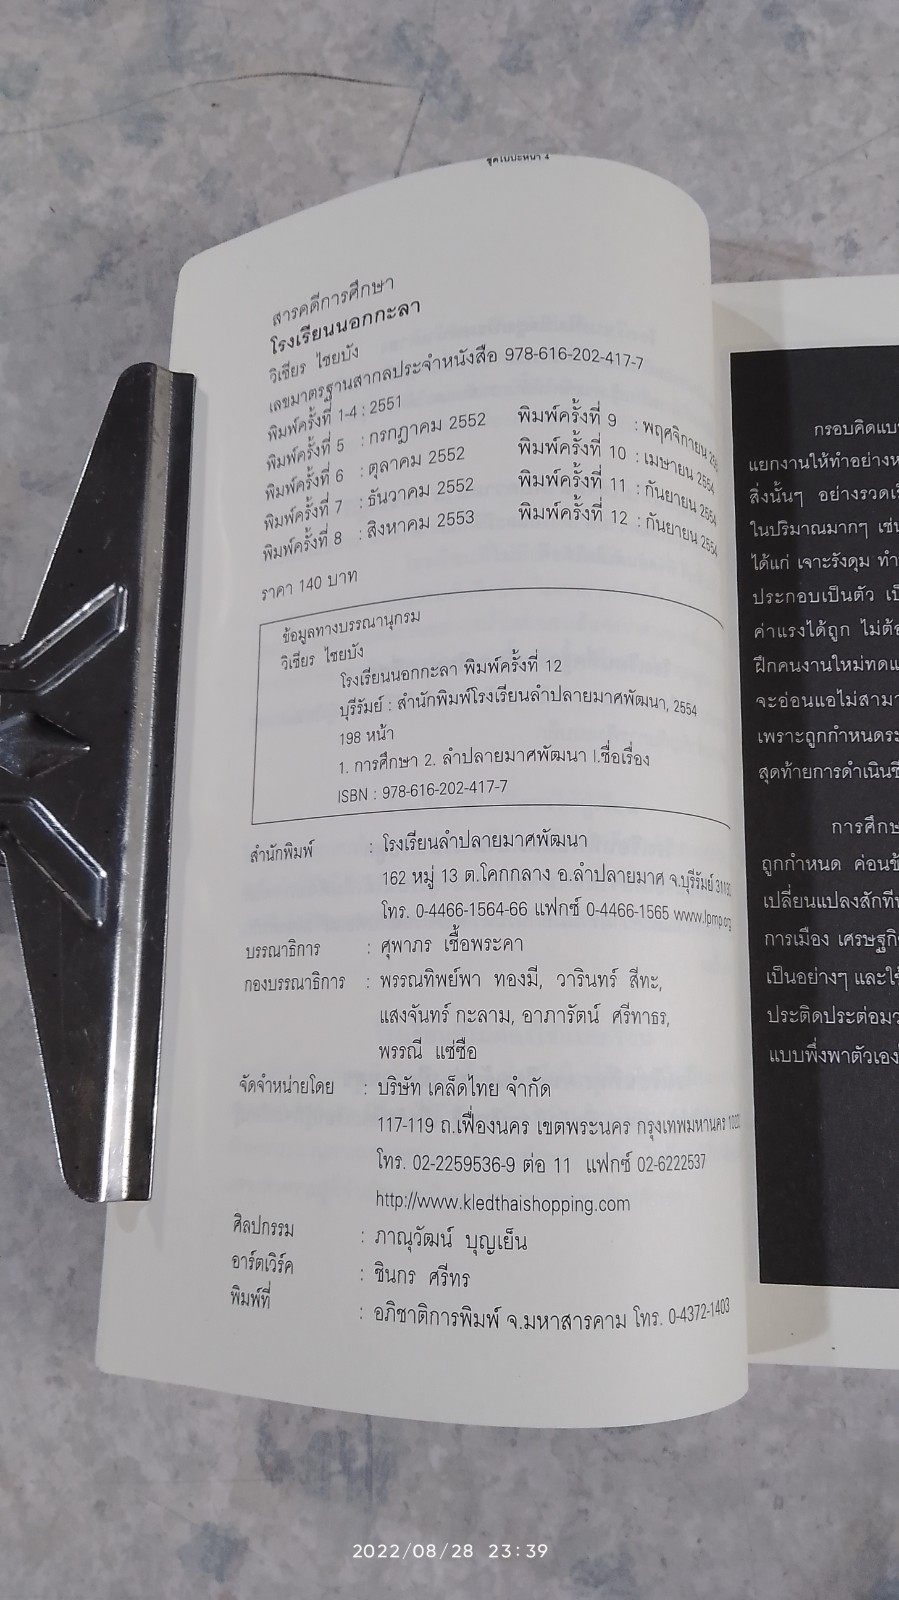 สารคดีการศึกษา
โรงเรียนนอกกะลา
วิเชียร ไชยบัง
เลขมาตรฐานสากลประจำหนังสือ 978-616-202-417-7
พิมพ์ครั้งที่ 1-4 : 2551
พิมพ์ครั้งที่ 5 : กรกฎาคม 2552 พิมพ์ครั้งที่ 9 : พฤศจิกายน
พิมพ์ครั้งที่ 6 : ตุลาคม 2552 พิมพ์ครั้งที่ 10 : เมษายน 2554
พิมพ์ครั้งที่ 7 : ธันวาคม 2552 พิมพ์ครั้งที่ 11 : กันยายน 2554
พิมพ์ครั้งที่ 8 : สิงหาคม 2553 พิมพ์ครั้งที่ 12 : กันยายน 2554
ราคา 140 บาท
ข้อมูลทางบรรณานุกรม
วิเชียร ไชยบัง
โรงเรียนนอกกะลา พิมพ์ครั้งที่ 12
บุรีรัมย์ : สำนักพิมพ์โรงเรียนลำปลายมาศพัฒนา, 2554
198 หน้า
1. การศึกษา 2. ลำปลายมาศพัฒนา I.ชื่อเรื่อง
ISBN : 978-616-202-417-7
สำนักพิมพ์ : โรงเรียนลำปลายมาศพัฒนา
162 หมู่ 13 ต.โคกกลาง อ.ลำปลายมาศ จ.บุรีรัมย์ 31130
โทร. 0-4466-1564-66 แฟกซ์ 0-4466-1565 www.lpmp.org
บรรณาธิการ : ศุพาภร เชื้อพระคา
กองบรรณาธิการ : พรรณทิพย์พา ทองมี, วารินทร์ สีทะ,
แสงจันทร์ กะลาม, อาภารัตน์ ศรีทาธร,
พรรณี แซ่ซือ
จัดจำหน่ายโดย : บริษัท เคล็ดไทย จำกัด
117-119 ถ.เฟื่องนคร เขตพระนคร กรุงเทพมหานคร
โทร. 02-2259536-9 ต่อ 11 แฟกซ์ 02-6222537
http://www.kledthaishopping.com
ศิลปกรรม : ภาณุวัฒน์ บุญเย็น
อาร์ตเวิร์ค : ชินกร ศรีทร
พิมพ์ที่ : อภิชาติการพิมพ์ จ.มหาสารคาม โทร. 0-4372-1403
กรอบคิดแบบ
แยกงานให้ทำอย่าง
สิ่งนั้นๆ อย่างรวดเร็
ในปริมาณมากๆ เช่น
ได้แก่ เจาะรังดุม ทำ
ประกอบเป็นตัว เป็
ค่าแรงได้ถูก ไม่ต้อ
ฝึกคนงานใหม่ทดแ
จะอ่อนแอไม่สามา
เพราะถูกกำหนดระ
สุดท้ายการดำเนินชี
การศึกษ
ถูกกำหนด ค่อนข้
เปลี่ยนแปลงสักที
การเมือง เศรษฐกิ
เป็นอย่างๆ และใช้
ประติดประต่อมว
แบบพึ่งพาตัวเอง
2022/08/28 23:39